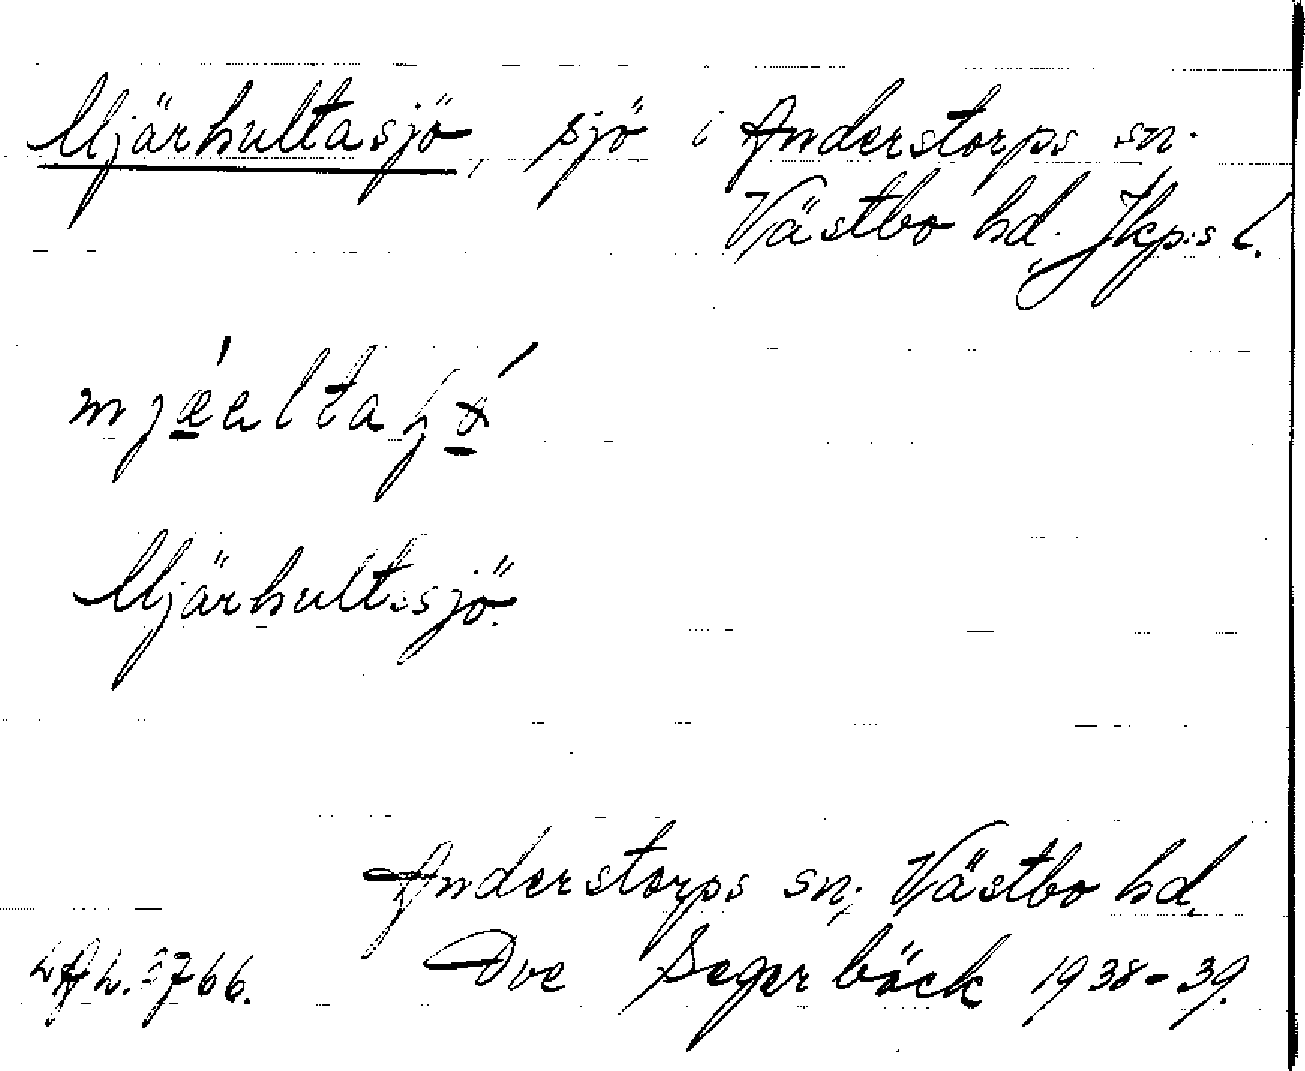 Mjärhultasjö, sjö i Anderstorps sn.
Västbo hd. Jkp:s l.
Mjärhultssjö.
Anderstorps sn, Västbo hd.
Ove Segerbäck 1938-39.